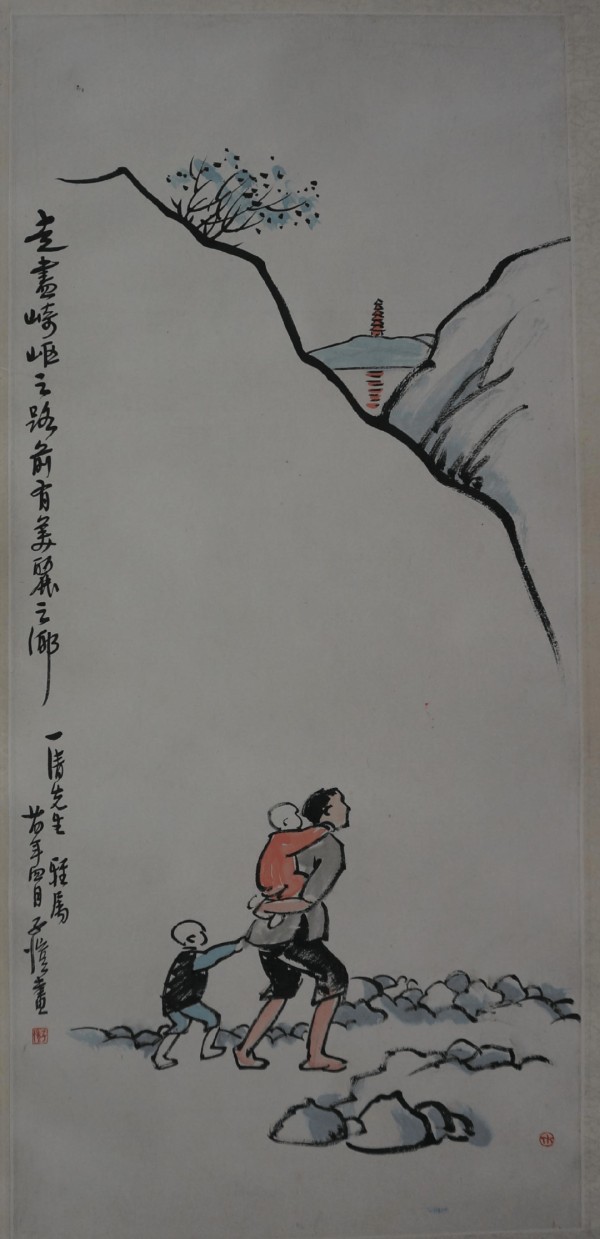 走盡崎岖之路前有美麗之鄉
一清先生 雅属
年四月 子愷畫